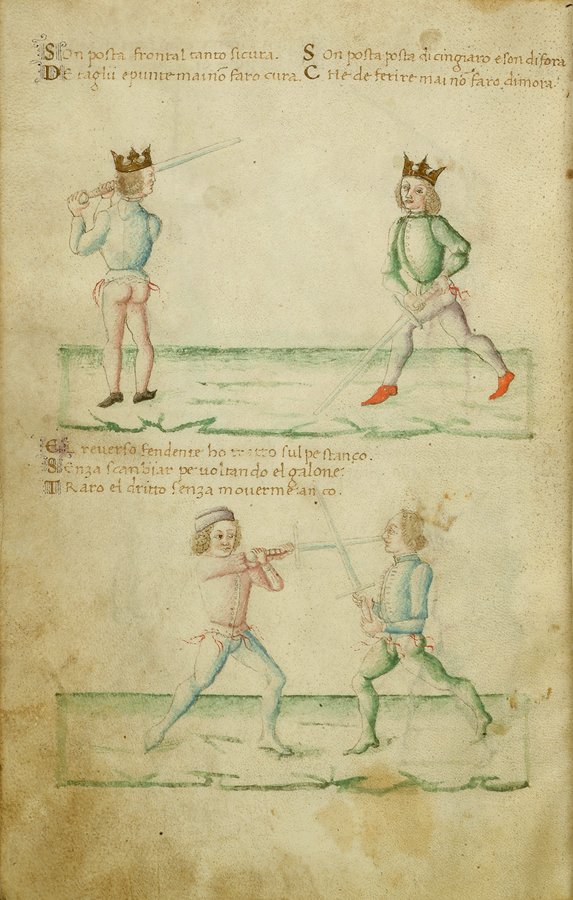 Son posta frontal tanto sicura.
De taglii e punte mai nō faro cura.
Son posta posta di cingiaro e son di fora
Che de ferire mai nō faro dimora.
El reverso fendente ho sul pe stanco.
Senza scanbiar pe voltando el galone.
Traro el dritto senza moverme anco.